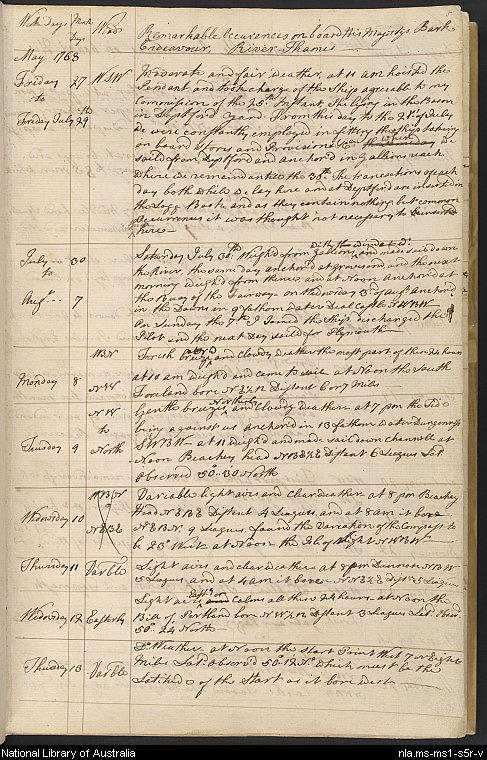 Week days Month Days Winds Remarkable Occurences on board His Majestys Bark
Endeavour, River Thames
May 1768
Friday 27 WSW Moderate and fair weather, at 11 am hoisted the
to Pendant and took charge of the Ship agreeable to my
Friday July 29th Commission of the 25th Instant, She lying in the Bason
in Deptford Yard. From this day to the 21st of July
we were constantly employed in fitting the Ship takeing
on board Stores and Provisions &Ca when we
sailed from Deptford and anchor'd in Gallions reach
where we remaind until the 30th. The transactions of each
day both while we lay here and at Deptford are inserted in
the Logg Book, and as they contain nothing but common
Occurrences it was thought not necessary to
here
July 30 Saturday July 30th Weigh'd from Gallions, and made sail down
to the River, the same day anchor'd at gravesend and the next
Augst 7 morning weighed from thence and at Noon Anchor'd at
the Buoy of the Fairway on Wednesday 3d of augt anchor'd
in the Downs in 9 fathom water Deal Castle NWBW
On Sunday the 7th I Joined the Ship, discharged the
Pilot and the next day saild for Plymouth
WBN Fresh and Cloudy weather the most part of these 24 hours
Monday 8 NW at 10 am weighd and came to sail at Noon the South
foreland bore NE½N Distant 6 or 7 Miles
NW Gentle breezes Northerly and Cloudy weather at 7 pm the Tide
to being against us anchor'd in 13 fathom water Dungenness
Tuesday 9 North SWBW at 11 weigh'd and made sail down channell at
Noon Beachey head NBE½E Distant 6 Leagues Lat
observed 50°..30 North
WBN Variable light airs and clear weather at 8 pm Beachey
Wednesday 10 NEBE Head NEBE Distant 4 Leagues, and at 8 am it bore
NEBN 9 leagues found the Variation of the Compass to
be 23° West at Noon the Isle of Wight NWBW
Thursday 11 Varble Light airs and clear weather at 8 pm Dunnose NBW
5 Leagues and at 4 am it bore NNE½E Dist 5 Leagues
Wednesday 12 Easterly Light airs Easterly and Calms all these 24 hours at Noon the
Bill of Portland bore NW½N Distant 3 Leagues Lat. Obserd
50°.24 North
Thursday 13 Varble Do Weather at Noon the Start Point West 7 or Eight
Mile Lat. Observed 50°.12 N. which must be the
Latitude of the Start as it bore West
National Library of Australia nla.ms-ms1-s5r-v